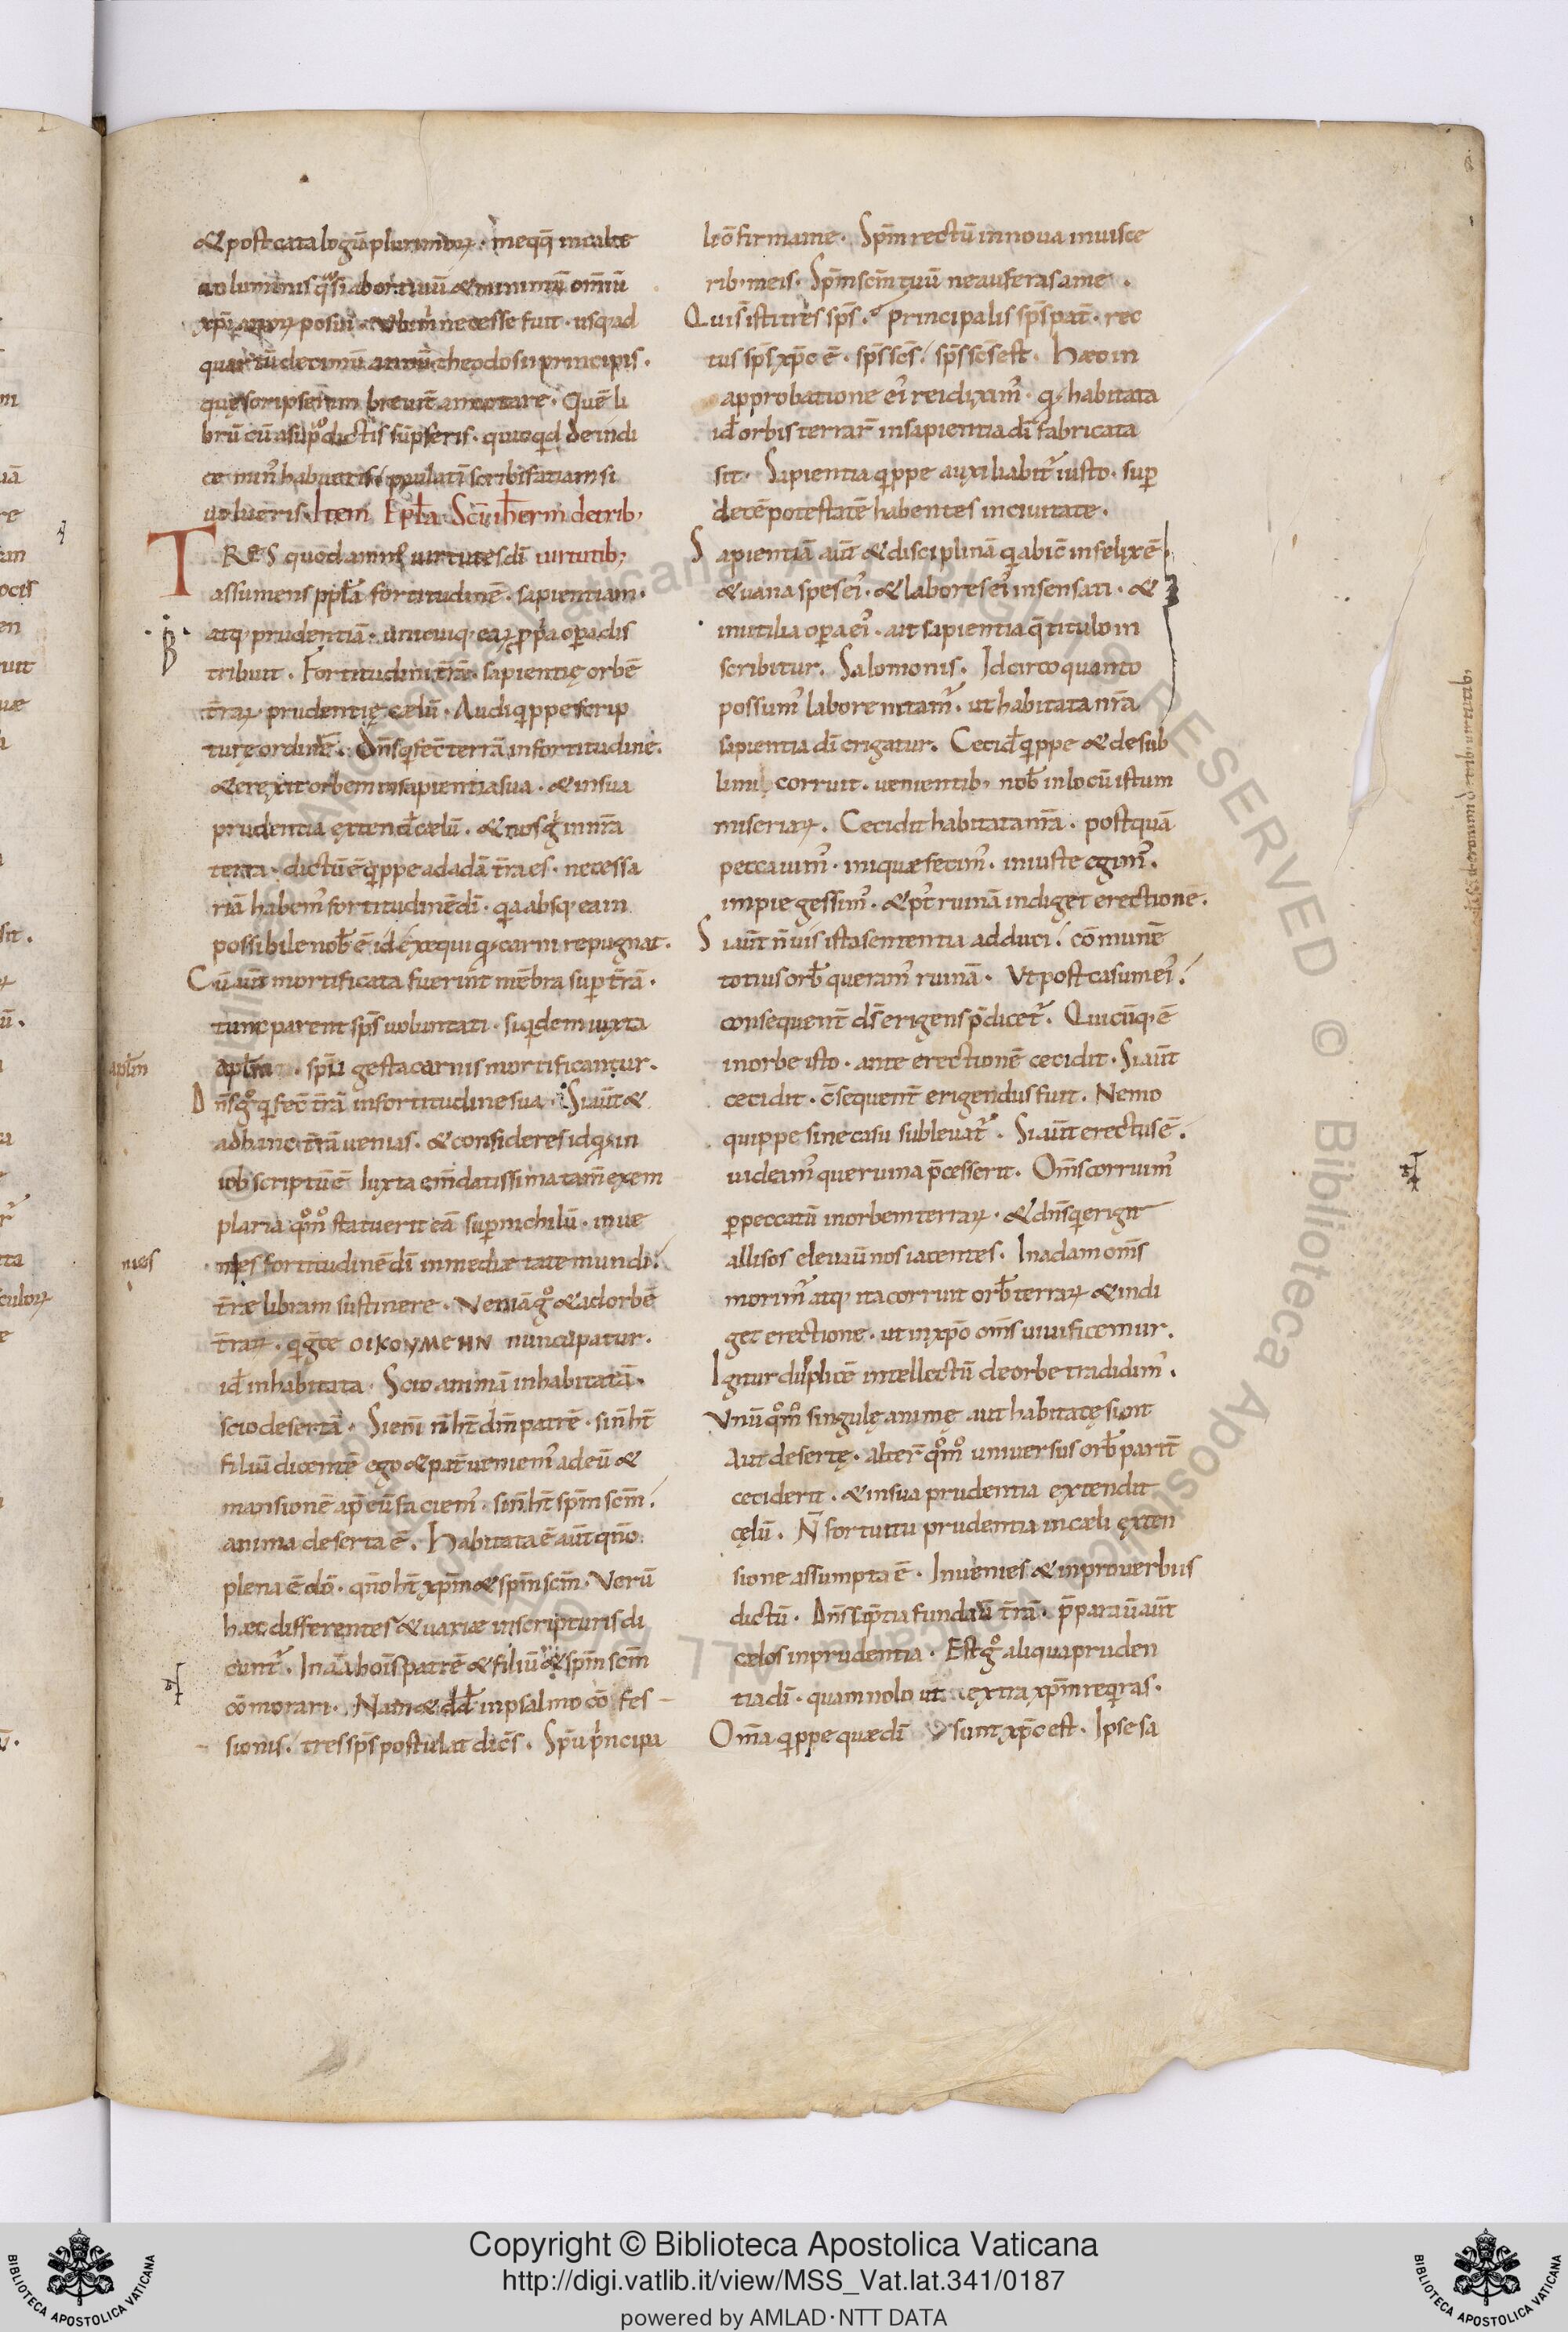 & post catalogū plurimorꝝ · meqq̄ in calce
uoluminis q̄si abortiuū & minimū om̄iū
xp̄ianorꝝ posui · ubi m̄ necesse fuit · usq; ad
quartū decimū annū theodosii principis ·
quę scripserim breuit̄ annotare · Quē li
brū cū a sup̄dictis sūpseris · quicq̄d de indi
ce min̄ habueris / paulatī scribi faciam si
uolueris · Item Ep̄ła Sc̄i iheron̄ de trib;
TRES quodammō uirtutes dī uirtutib;
assumens ꝓph̄a fortitudinē · sapientiam ·
atq; prudentiā · unicuiq; eaꝝ ꝓpria op̄a dis
tribuit . Fortitudini t̄rā · sapientię orbē
t̄raꝝ · prudentię cælū · Audi q̄ppe scrip
turę ordinē . Dn̄s q̄ fec̄ terrā in fortitudine .
& erexit orbem in sapientia sua · & in sua
prudentia extend̄ cælū . & nos ḡ in nr̄a
terra · dictū ē q̄ppe ad adā t̄ra es · necessa
riā habem̄ fortitudinē dī · q̄a absq; eam
possibile nob̄ ē id exequi q; carni repugnat .
Cū aūt mortificata fuerint mēbra sup t̄rā ·
tunc parent sp̄s uoluntati · siq̄dem iuxta
aplm̄ · sp̄u gesta carnis mortificantur .
Dn̄s ḡ q̄ fec̄ t̄rā in fortitudine sua · Si aūt &
ad hanc t̄rā uenias . & consideres id q; in
iob scriptū ē Iuxta em̄datissima tam̄ exem
plaria q̊m̊ statuerit eā sup nichilū · inue
nies fortitudinē dī in medietate mundi /
t̄ræ libram sustinere · Veniā ḡ & ad orbē
t̄raꝝ · q̄ ḡce ΟΙΚΟΥΜΕΗΝ nuncupatur .
id̄ inhabitata · Scio animā inhabitatā .
scio desertā . Si enī n̄ h̄t dm̄ patrē · si n̄ h̄t
filiū dicentē ego & pat̄ ueniem̄ ad eū &
mansionē ap̄ eū faciem̄ · si n̄ h̄t sp̄m sc̄m /
anima deserta ē . Habitata ē aūt qn̄o
plena ē dō . qn̄o h̄t xp̄m & sp̄m sc̄m · Verū
hæc differentes & uariæ in scripturis di
cunt̄ . In aīa hoīs patrē & filiū & sp̄m sc̄m
cōmorari . Nam & dd̄ in psalmo cōfes-
sionis . tres sp̄s postulat dic̄s . Sp̄u p̄ncipa
aplm̄
nies
A
B
li cōfirma me . Sp̄m rectū innoua in uisce
rib; meis . Sp̄m sc̄m tuū ne auferas a me .
Qui s̄ isti tres sp̄s . Principalis sp̄s pat̄ · rec
tus sp̄s xp̄c ē . sp̄s sc̄s / sp̄s sc̄s est . Hæc in
approbatione ei̓ rei dixim̄ · q; habitata
id̄ orbis terrar̄ in sapientia dī fabricata
sit . Sapientia q̄ppe auxiliabit̄ iusto · sup
decē potestatē habentes in ciuitate .
Sapientiā aūt & disciplinā q̄ abic̄ infelix ē
& uana spes ei̓ . & labores ei̓ insensati . &
inutilia op̄a ei̓ . ait sapientia q̄ titulo in
scribitur . Salomonis . Idcirco quanto
possum̄ labore nitam̄ . ut habitata nr̄a
sapientia dī erigatur . Cecid̄ q̄ppe & de sub
limi corruit . uenientib; nob̄ in locū istum
miseriaꝝ . Cecidit habitata nr̄a . postquā
peccauim̄ . iniquæ fecim̄ . iniuste egim̄ .
impie gessim̄ . & pt̄ ruinā indiget erectionē .
Si aūt n̄ uis ista sententia adduci / cōmunē
totius orb̄ queram̄ ruinā . Vt post casum ei̓ /
consequent̄ dī erigens p̄dicet̄ . Quicūq; ē
in orbe isto . ante erectionē cecidit . Si aūt
cecidit . c̄sequent̄ erigendus fuit . Nemo
quippe sine casu subleuat̄ . Si aūt erectus ē .
uideam̄ que ruina p̄cesserit . Om̄s corruim̄
ꝑ peccatū in orbem terraꝝ . & dn̄s q̄ erigit
allisos eleuaū nos iacentes . In adam om̄s
morim̄ atq; ita corruit orb̄ terraꝝ & indi
get erectione . ut in xp̄o om̄s uiuificemur .
Igitur duplicē intellectū de orbe tradidim̄ .
Vnū q̊m̊ singulę animę aut habitatę sunt
Aut desertę . alter̄ q̊m̊ uniuersus orb̄ parit̄
ceciderit . & in sua prudentia extendit
cęlū . N̄ fortuitu prudentia in cæli exten
sione assumpta ē . Inuenies & in prouerbiis
dictū . Dn̄s sap̄tia fundaū t̄rā . p̄parauū aūt
celos in prudentia . Est ḡ aliqua pruden
tia dī . quam nolo ut extra xp̄m req̄ras .
Om̄a q̄ppe quæ dī sunt xp̄c est . Ipse sa
Copyright © Biblioteca Apostolica Vaticana
http://digi.vatlib.it/view/MSS_Vat.lat.341/0187
powered by AMLAD·NTT DATA
BIBLIOTECA APOSTOLICA VATICANA
BIBLIOTECA APOSTOLICA VATICANA